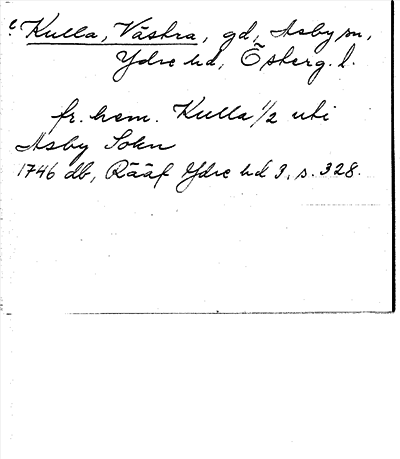 Kulla, Västra, gd, Asby sn,
Ydre hd, Österg. l.
fr. hem. Kulla 1/2 uti
Asby Sokn
1746 db, Rääf Ydre hd 3, s. 328.